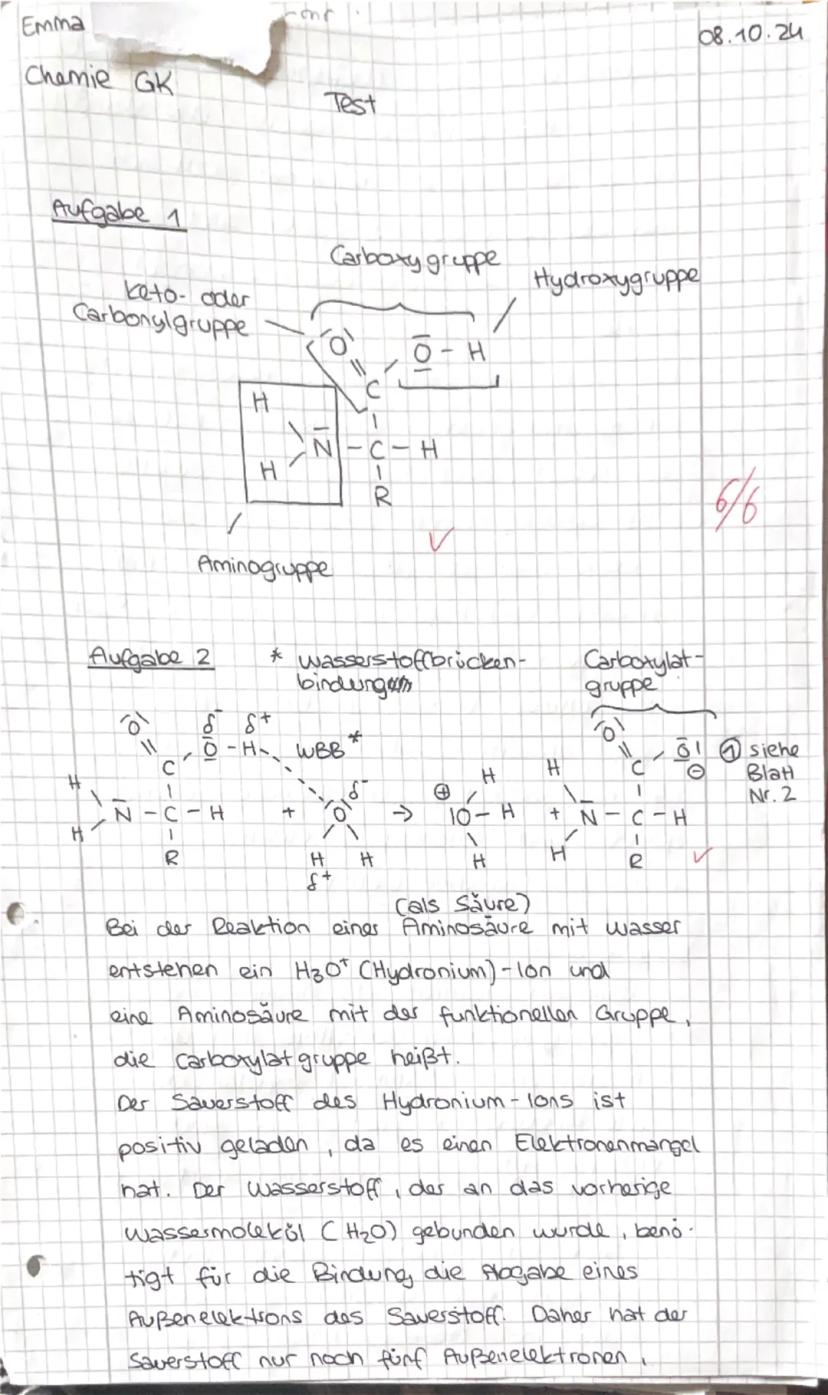 Emma
08.10.24
Chemie GK
Test
Aufgabe 1
Carboxygruppe
Hydroxygruppe
Keto- oder
Carbonylgruppe
O
O - H
C
H
N - C - H
H
R
6/6
Aminogruppe
Aufgabe 2
* Wasserstoffbrücken-
bindung
Carboxylat-
gruppe
O δ- δ+ O
O - H WBB* O ⊖ ① siehe
Blatt
Nr. 2
C H H C
H δ- ⊕
N - C - H + O → IO - H + N - C - H
H
R H H H H R
δ+
(als Säure)
Bei der Reaktion einer Aminosäure mit Wasser
entstehen ein H3O+ (Hydronium)-Ion und
eine Aminosäure mit der funktionellen Gruppe,
die Carboxylatgruppe heißt.
Der Sauerstoff des Hydronium-Ions ist
positiv geladen, da es einen Elektronenmangel
hat. Der Wasserstoff, der an das vorherige
Wassermoleköl (H2O) gebunden wurde, benö-
tigt für die Bindung die Abgabe eines
Außenelektrons des Sauerstoff. Daher hat der
Sauerstoff nur noch fünf Außenelektronen,